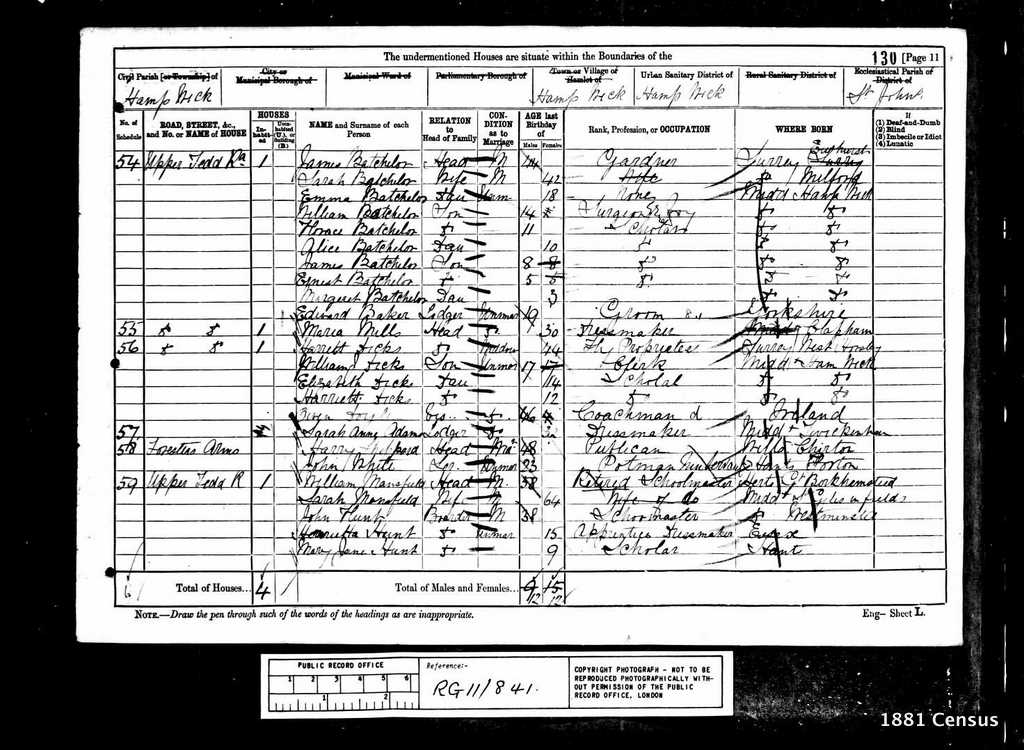 The undermentioned Houses are situate within the Boundaries of the
130 [Page 11
Civil Parish [or Township] of
City or Municipal Borough of
Municipal Ward of
Parliamentary Borough of
Town or Village of Hamlet of
Urban Sanitary District of
Rural Sanitary District of
Ecclesiastical Parish of District of
Hamp Wick Hamp Wick Hamp Wick St Johns
No. of Schedule
ROAD, STREET, &c., and No. or NAME of HOUSE
HOUSES
Inhabited
Uninhabited (U.), or Building (B.)
NAME and Surname of each Person
RELATION to Head of Family
CONDITION as to Marriage
AGE last Birthday of
Males Females
Rank, Profession, or OCCUPATION
WHERE BORN
If
(1) Deaf-and-Dumb
(2) Blind
(3) Imbecile or Idiot
(4) Lunatic
54 Upper Tedd Rd 1 James Batchelor Head M 44 Gardner Surrey
Sarah Batchelor Wife M 42 Wife do Milford
Emma Batchelor Dau Unm 18 None Midd Hamp Wick
William Batchelor Son 14 do do
Horace Batchelor do 11 Scholar do do
Alice Batchelor Dau 10 do do do
James Batchelor Son 8 do do do
Ernest Batchelor do 5 do do do
Margaret Batchelor Dau 3 do do
Edward Baker Lodger Unmar 19 Groom Yorkshire
55 do do 1 Maria Mills Head do 30 Dressmaker Clapham
56 do do 1 Harriett Dicks do Widow 44 Fly Proprietes Surrey West Horsley
William Dicks Son Unmar 17 Clerk Midd Ham Wick
Elizabeth Dicks Dau 14 Scholar do do
Harriett Dicks do 12 do do do
do 46 Coachman d Ireland
57 Sarah Anne Adams Lodger do Dressmaker Midd Twickenham
58 Foresters Arms Harry Head 48 Publican Wilts Chirton
John White Unmar 23 Potman
59 Upper Tedd R 1 William Mansfield Head M 58 Retired Schoolmaster Hert Gt Berkhamsted
Sarah Mansfield Wife M 64 Wife of do Midd St Giles in fields
John Hunt Boarder M 38 Schoolmaster do Westminster
Henrietta Hunt do Unmar 15 Apprentice Dressmaker Essex
Mary Jane Hunt do 9 Scholar Hant
6 Total of Houses... 4 1 Total of Males and Females... 9 15
12 12
NOTE.—Draw the pen through such of the words of the headings as are inappropriate.
Eng— Sheet L.
PUBLIC RECORD OFFICE
1 2 3 4 5 6
1 2
Reference:-
RG 11/841.
COPYRIGHT PHOTOGRAPH - NOT TO BE
REPRODUCED PHOTOGRAPHICALLY WITH-
OUT PERMISSION OF THE PUBLIC
RECORD OFFICE, LONDON
1881 Census